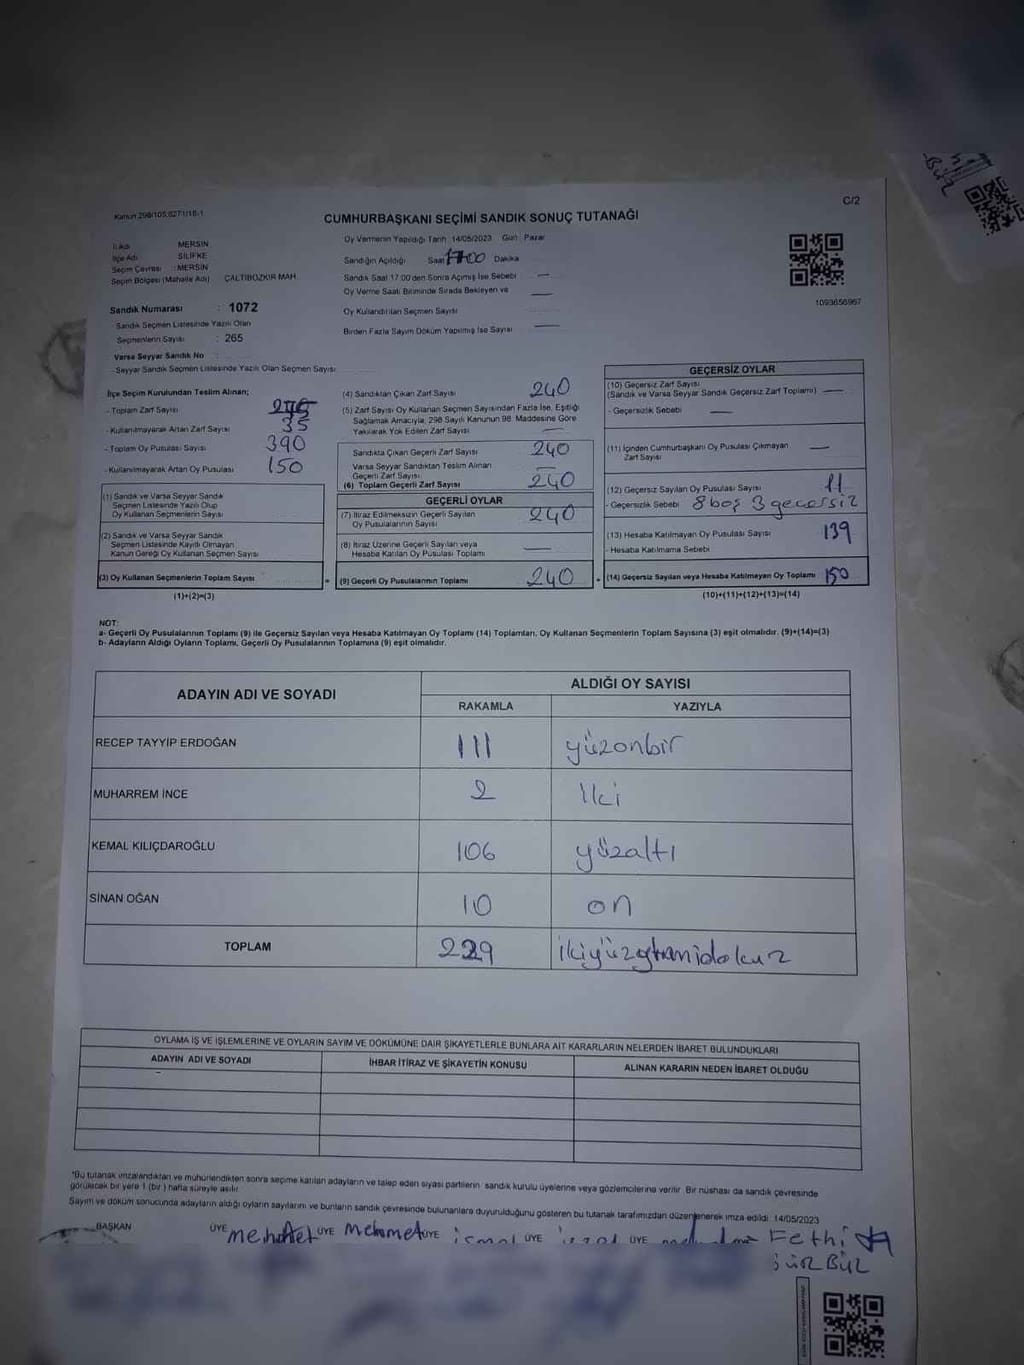 C/2
Kanun 298/105,6271/16-1
CUMHURBAŞKANI SEÇİMİ SANDIK SONUÇ TUTANAĞI
İl Adı MERSİN
İlçe Adı SİLİFKE
Seçim Çevresi : MERSİN
Seçim Bölgesi (Mahalle Adı) ÇALTIBOZKIR MAH.
Oy Vermenin Yapıldığı Tarih 14/05/2023 Gün Pazar
Sandığın Açıldığı Saat 17:00 Dakika
Sandık Saat 17:00'den Sonra Açılmış İse Sebebi —
Oy Verme Saati Bitiminde Sırada Bekleyen ve
Oy Kullandırılan Seçmen Sayısı —
Birden Fazla Sayım Döküm Yapılmış İse Sayısı —
1093656967
Sandık Numarası : 1072
- Sandık Seçmen Listesinde Yazılı Olan
Seçmenlerin Sayısı : 265
Varsa Seyyar Sandık No
- Seyyar Sandık Seçmen Listesinde Yazılı Olan Seçmen Sayısı
İlçe Seçim Kurulundan Teslim Alınan;
- Toplam Zarf Sayısı
- Kullanılmayarak Artan Zarf Sayısı 35
- Toplam Oy Pusulası Sayısı 390
- Kullanılmayarak Artan Oy Pusulası 150
(1) Sandık ve Varsa Seyyar Sandık
Seçmen Listesinde Yazılı Olup
Oy Kullanan Seçmenlerin Sayısı
(2) Sandık ve Varsa Seyyar Sandık
Seçmen Listesinde Kayıtlı Olmayan
Kanun Gereği Oy Kullanan Seçmen Sayısı
(3) Oy Kullanan Seçmenlerin Toplam Sayısı =
(1)+(2)=(3)
(4) Sandıktan Çıkan Zarf Sayısı 240
(5) Zarf Sayısı Oy Kullanan Seçmen Sayısından Fazla İse, Eşitliği
Sağlamak Amacıyla, 298 Sayılı Kanunun 98. Maddesine Göre
Yakılarak Yok Edilen Zarf Sayısı —
Sandıkta Çıkan Geçerli Zarf Sayısı 240
Varsa Seyyar Sandıktan Teslim Alınan
Geçerli Zarf Sayısı —
(6) Toplam Geçerli Zarf Sayısı 240
GEÇERLİ OYLAR
(7) İtiraz Edilmeksizin Geçerli Sayılan
Oy Pusulalarının Sayısı 240
(8) İtiraz Üzerine Geçerli Sayılan veya
Hesaba Katılan Oy Pusulası Toplamı —
(9) Geçerli Oy Pusulalarının Toplamı 240
GEÇERSİZ OYLAR
(10) Geçersiz Zarf Sayısı
(Sandık ve Varsa Seyyar Sandık Geçersiz Zarf Toplamı) —
- Geçersizlik Sebebi —
(11) İçinden Cumhurbaşkanı Oy Pusulası Çıkmayan
Zarf Sayısı —
(12) Geçersiz Sayılan Oy Pusulası Sayısı 11
- Geçersizlik Sebebi 8 boş 3 geçersiz
(13) Hesaba Katılmayan Oy Pusulası Sayısı 139
- Hesaba Katılmama Sebebi
(14) Geçersiz Sayılan veya Hesaba Katılmayan Oy Toplamı 150
(10)+(11)+(12)+(13)=(14)
NOT:
a- Geçerli Oy Pusulalarının Toplamı (9) ile Geçersiz Sayılan veya Hesaba Katılmayan Oy Toplamı (14) Toplamları, Oy Kullanan Seçmenlerin Toplam Sayısına (3) eşit olmalıdır. (9)+(14)=(3)
b- Adayların Aldığı Oyların Toplamı, Geçerli Oy Pusulalarının Toplamına (9) eşit olmalıdır.
ADAYIN ADI VE SOYADI ALDIĞI OY SAYISI
RAKAMLA YAZIYLA
RECEP TAYYİP ERDOĞAN 111 yüzonbir
MUHARREM İNCE 2 İki
KEMAL KILIÇDAROĞLU 106 yüzaltı
SİNAN OĞAN 10 on
TOPLAM 229
OYLAMA İŞ VE İŞLEMLERİNE VE OYLARIN SAYIM VE DÖKÜMÜNE DAİR ŞİKAYETLERLE BUNLARA AİT KARARLARIN NELERDEN İBARET BULUNDUKLARI
ADAYIN ADI VE SOYADI İHBAR İTİRAZ VE ŞİKAYETİN KONUSU ALINAN KARARIN NEDEN İBARET OLDUĞU
*Bu tutanak imzalandıktan ve mühürlendikten sonra seçime katılan adayların ve talep eden siyasi partilerin sandık kurulu üyelerine veya gözlemcilerine verilir. Bir nüshası da sandık çevresinde
görülecek bir yere 1 (bir) hafta süreyle asılır.
Sayım ve döküm sonucunda adayların aldığı oyların sayılarını ve bunların sandık çevresinde bulunanlara duyurulduğunu gösteren bu tutanak tarafımızdan düzenlenerek imza edildi. 14/05/2023
BAŞKAN ÜYE mehmet ÜYE Mehmet ÜYE ismal ÜYE ÜYE Fethi
GÜRBÜZ